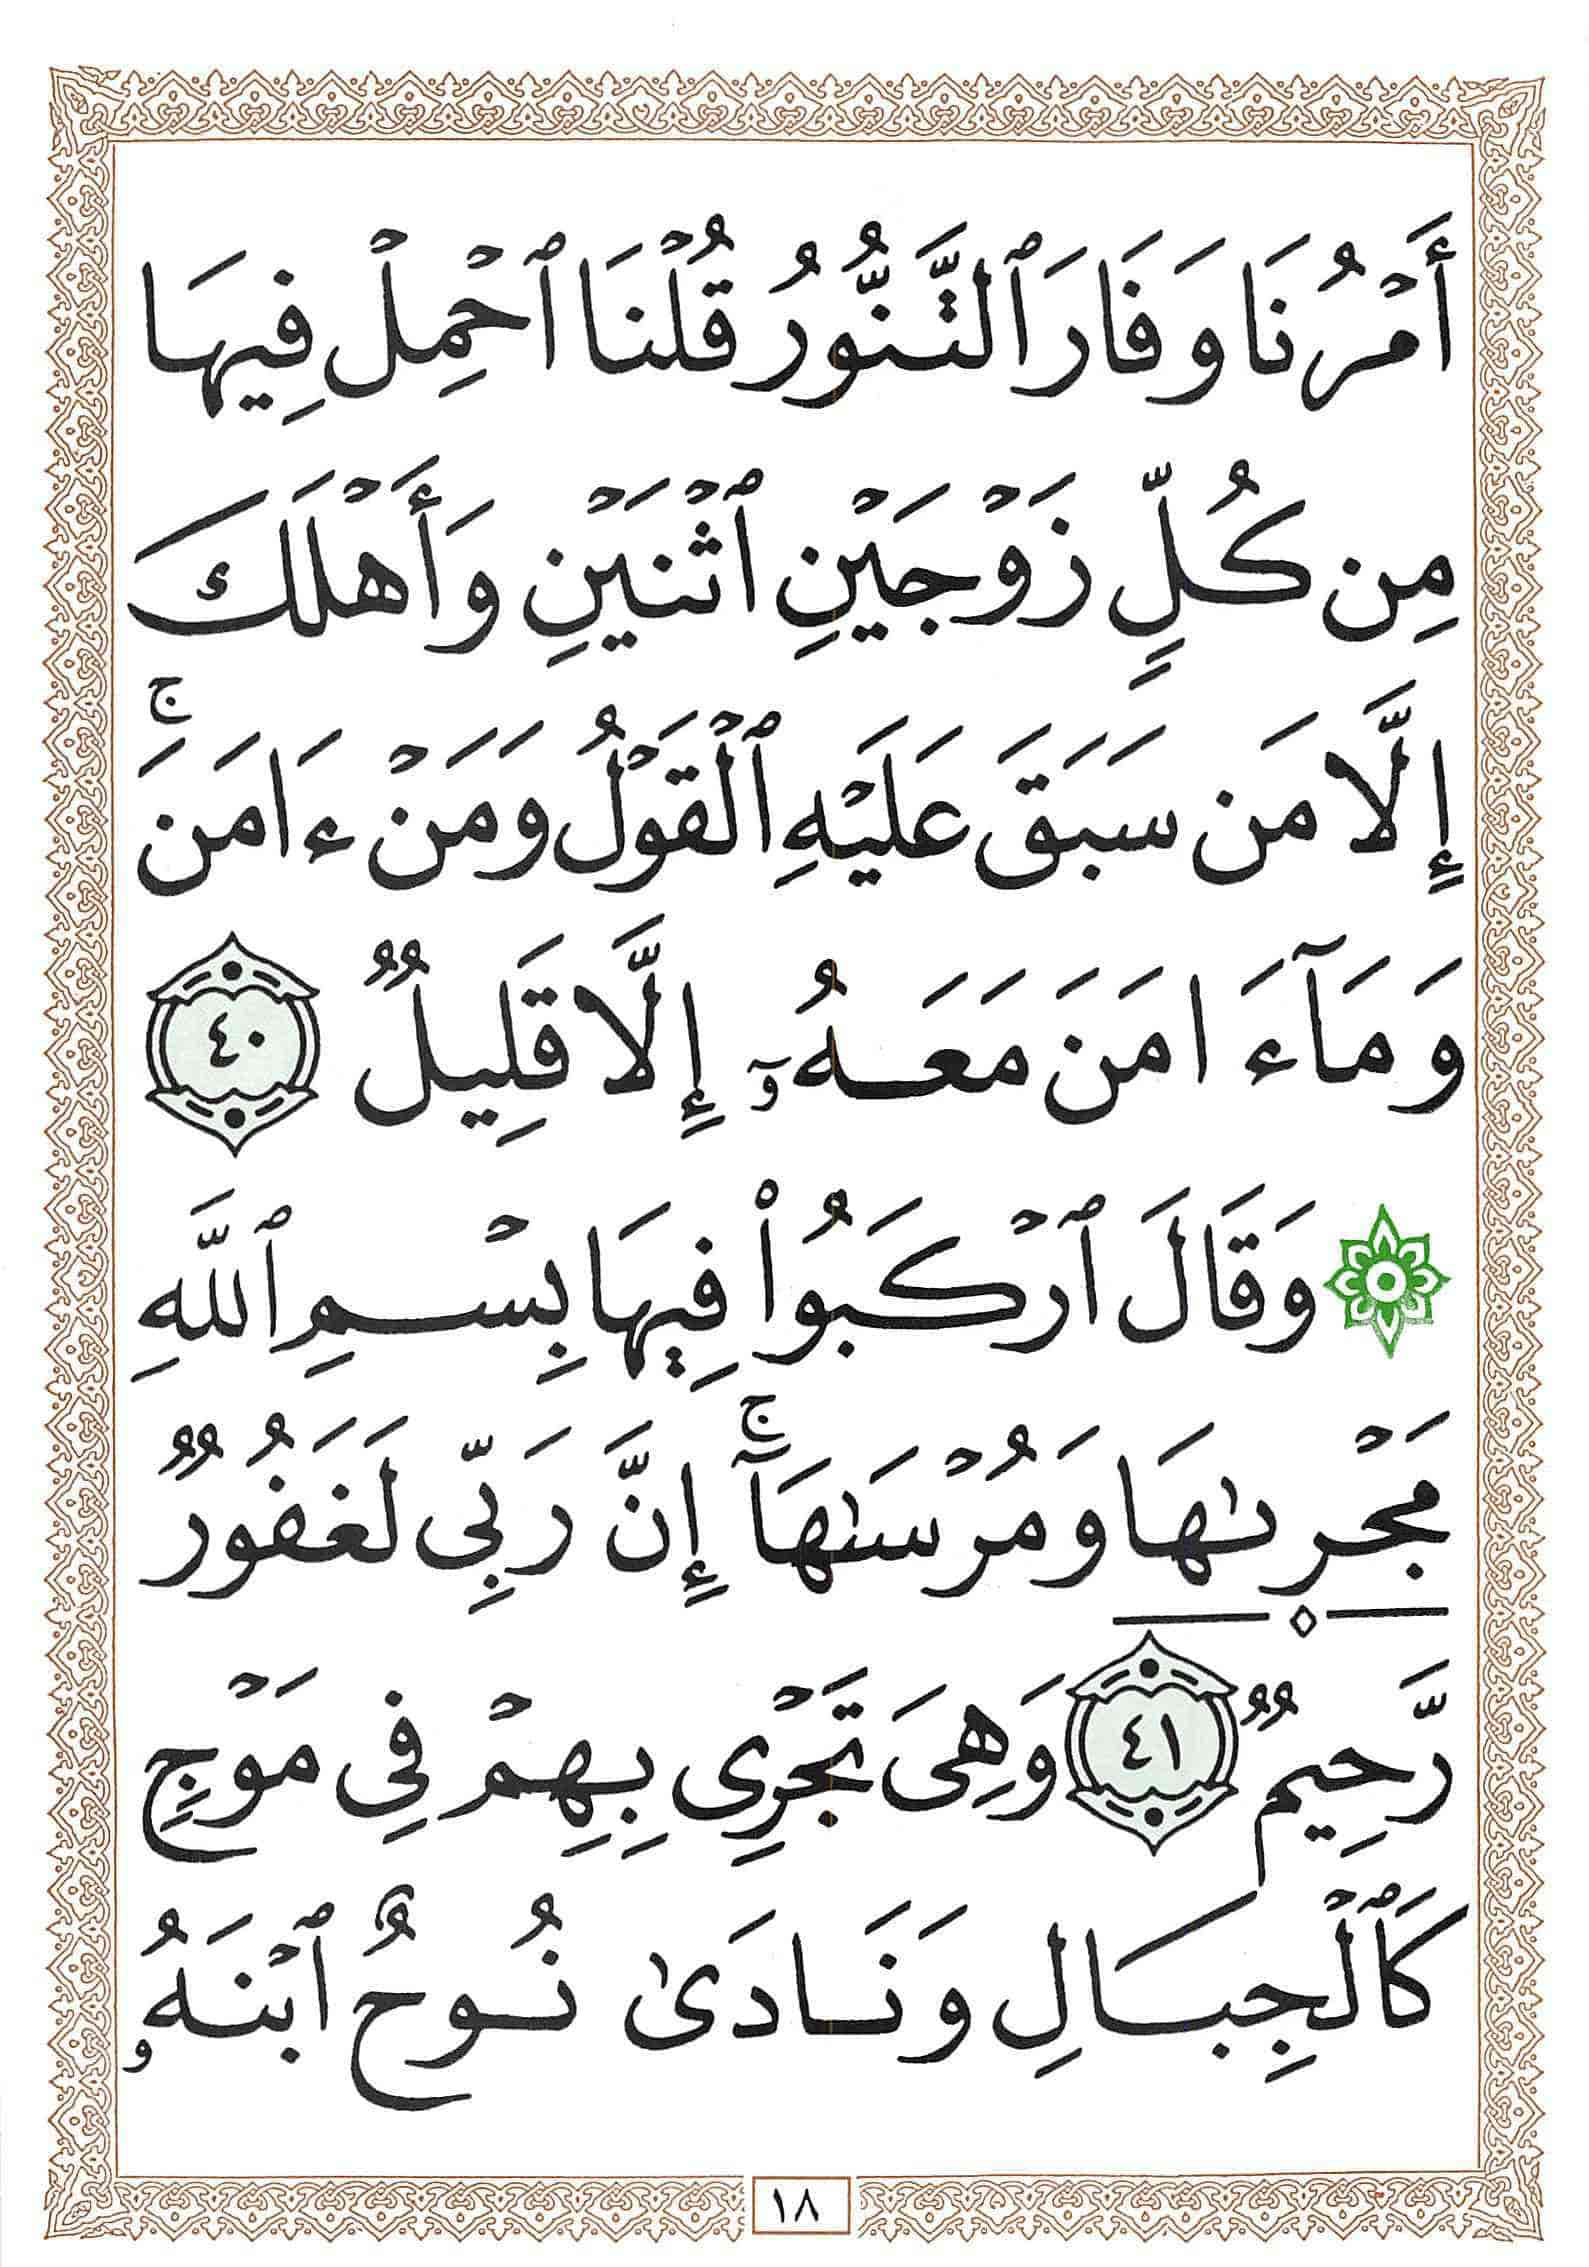 أَمْرُنَا وَفَارَ ٱلتَّنُّورُ قُلْنَا ٱحْمِلْ فِيهَا
مِن كُلٍّ زَوْجَيْنِ ٱثْنَيْنِ وَأَهْلَكَ
إِلَّا مَن سَبَقَ عَلَيْهِ ٱلْقَوْلُ وَمَنْ ءَامَنَ ۚ
وَمَآ ءَامَنَ مَعَهُۥٓ إِلَّا قَلِيلٌ ٤٠
۞ وَقَالَ ٱرْكَبُوا۟ فِيهَا بِسْمِ ٱللَّهِ
مَجْر۪ىٰهَا وَمُرْسَىٰهَآ ۚ إِنَّ رَبِّى لَغَفُورٌ
رَّحِيمٌ ٤١ وَهِىَ تَجْرِى بِهِمْ فِى مَوْجٍ
كَٱلْجِبَالِ وَنَادَىٰ نُوحٌ ٱبْنَهُۥ
١٨